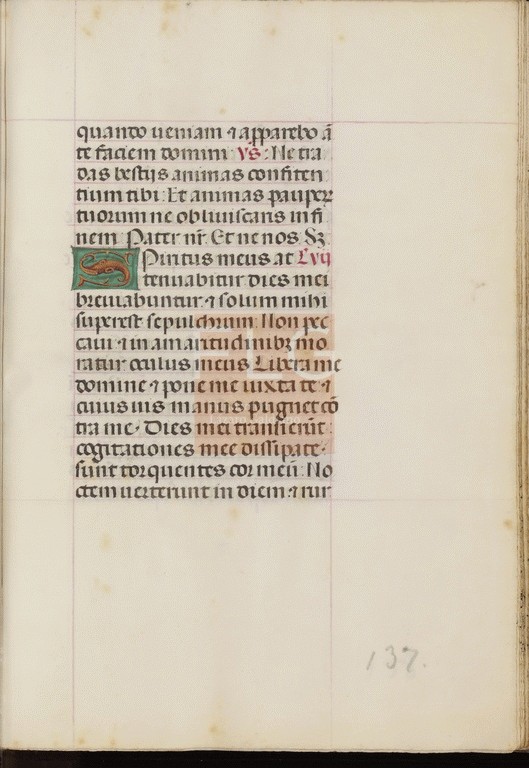 quando ueniam ⁊ apparebo ā
te faciem domini vs̄: Ne tra
das bestijs animas confiten
tium tibi: Et animas pauperꝝ
tuorum ne obliuiscaris in fi
nem Pater nr̄. Et ne nos Sꝫ
Spiritus meus at Lvij
tenuabitur dies mei
breuiabuntur ⁊ solum mihi
superest sepulchrum. Non pec
caui ⁊ in amaritudinibꝫ mo
ratur oculus meus Libera me
domine ⁊ pone me iuxta te ⁊
cuius uis manus pugnet cō
tra me. Dies mei transierūt:
cogitationes mee dissipate.
sunt torquentes cor meū: No
ctem uerterunt in diem ⁊ rur
137.